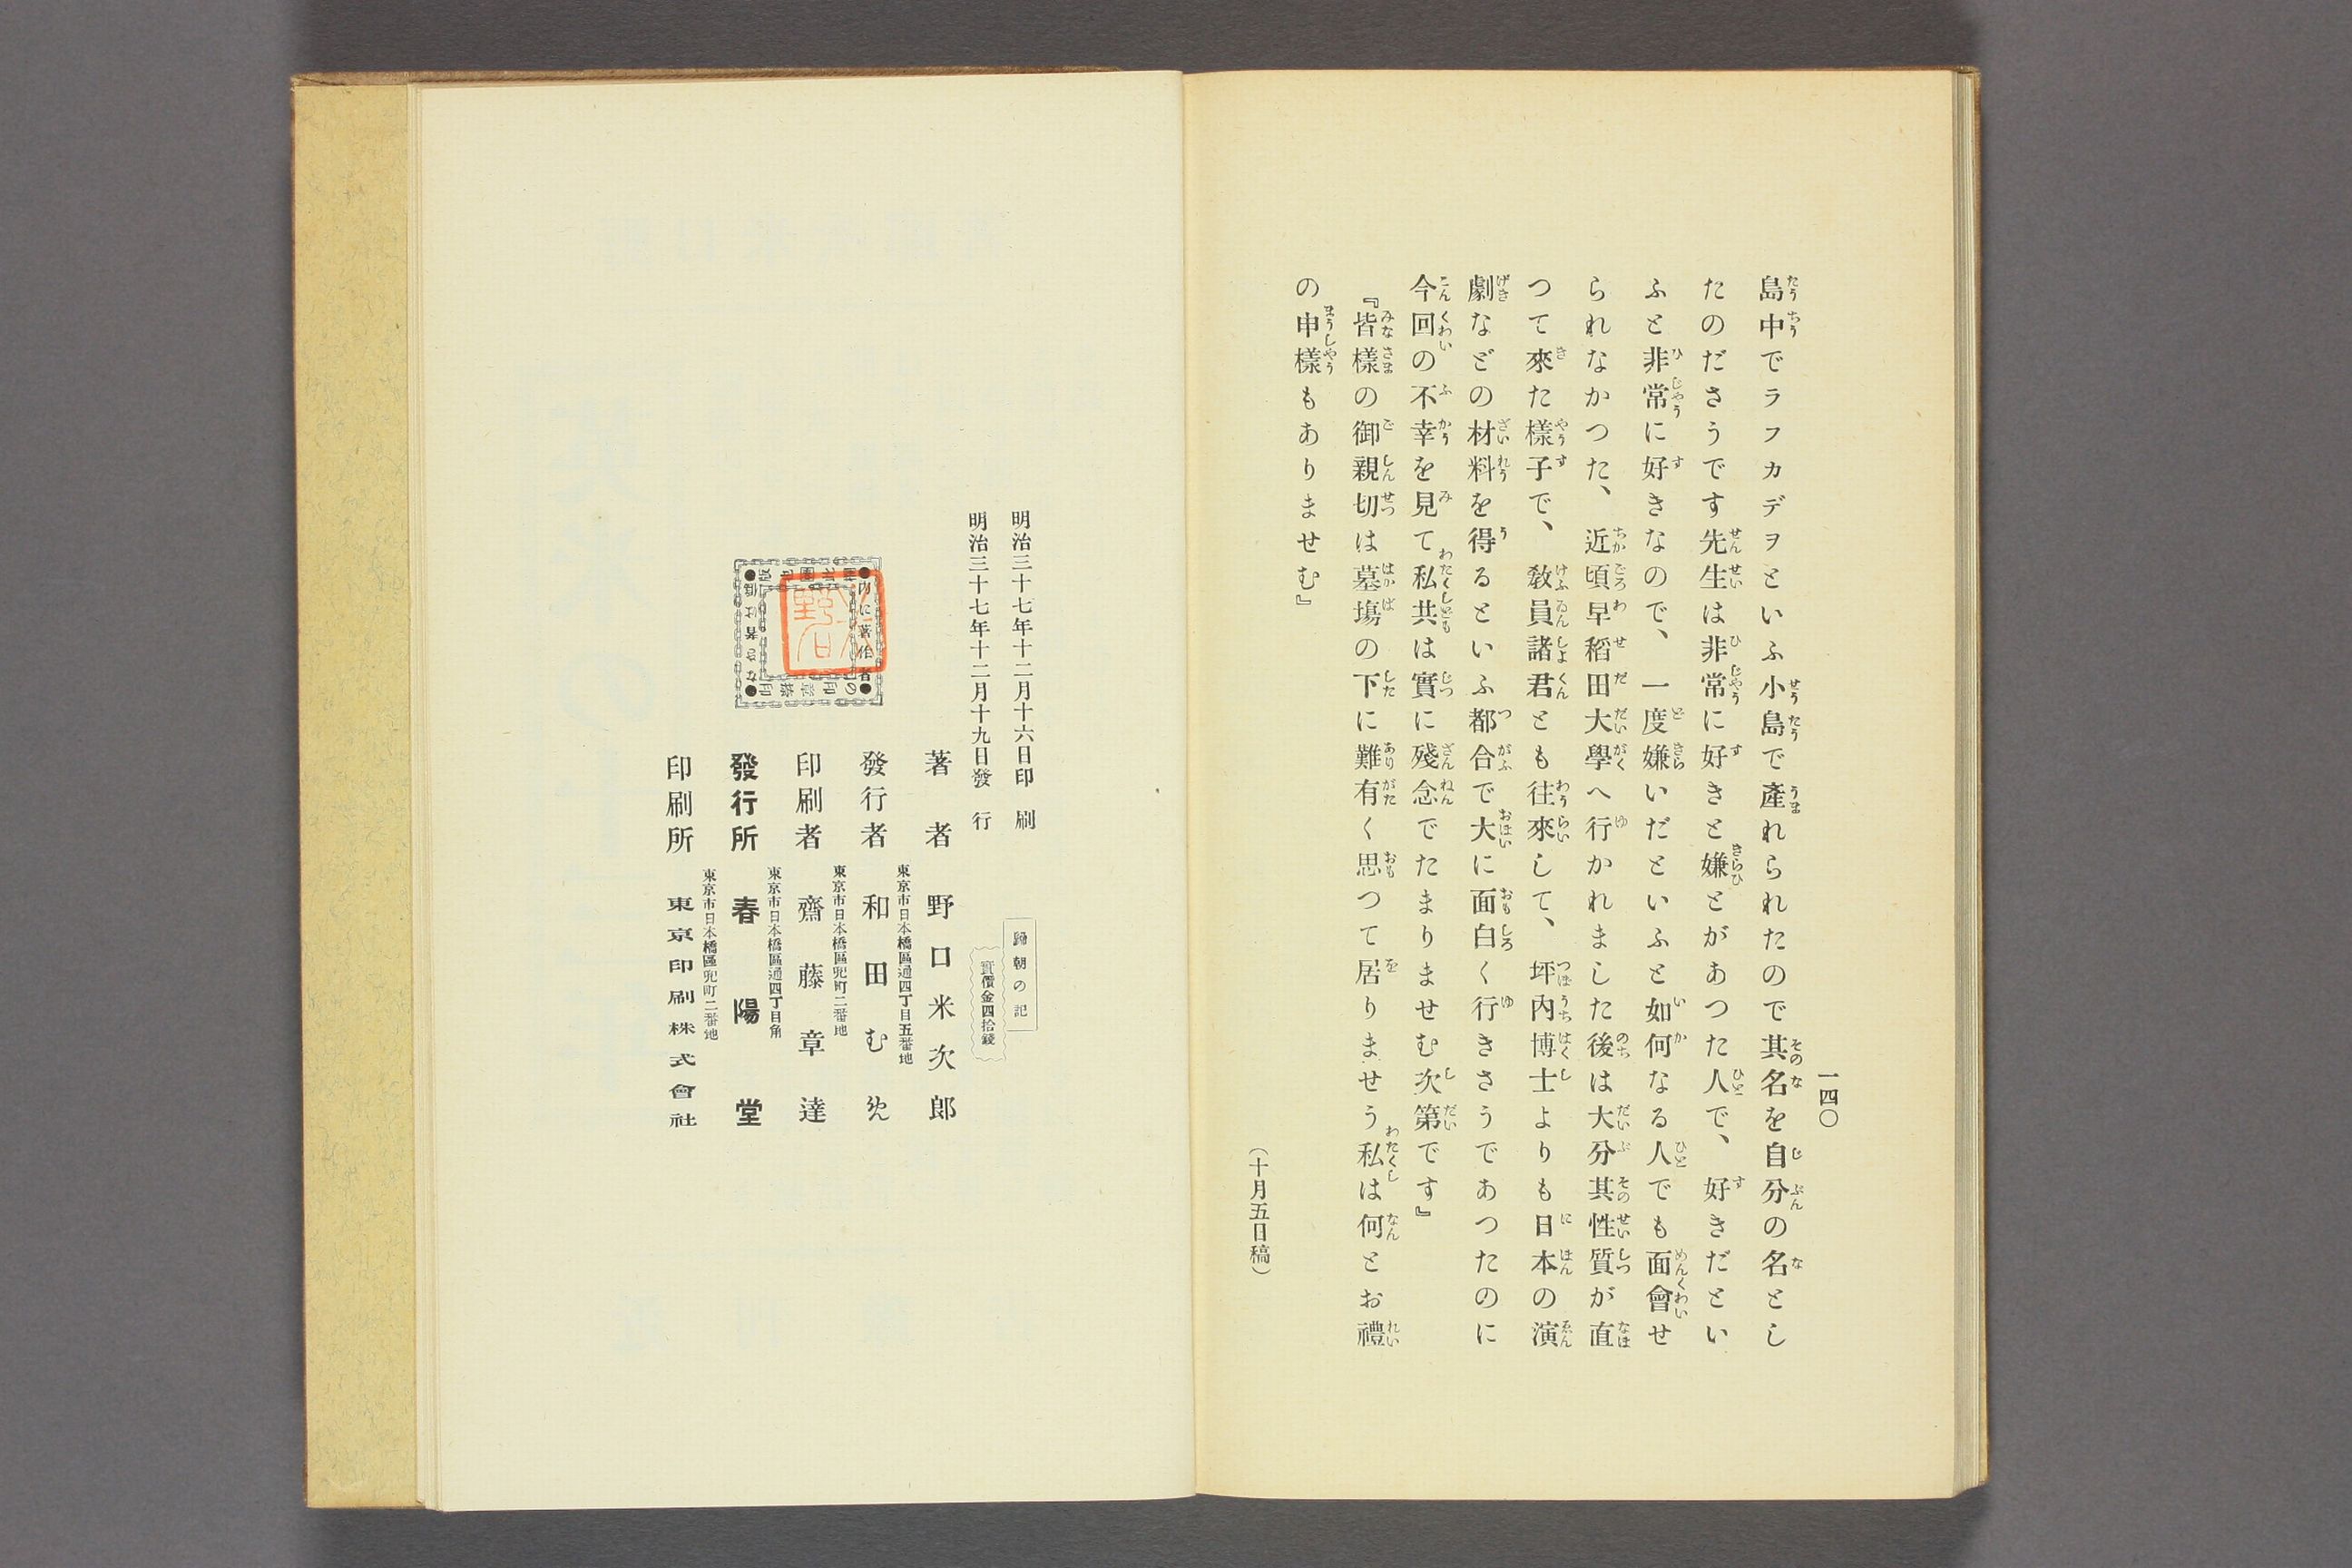 一四〇
島中でラフカデヲといふ小島で產れられたので其名を自分の名とし
たのださうです先生は非常に好きと嫌とがあつた人で、好きだとい
ふと非常に好きなので、一度嫌いだといふと如何なる人でも面會せ
られなかつた、近頃早稻田大學へ行かれました後は大分其性質が直
つて來た樣子で、敎員諸君とも往來して、坪內博士よりも日本の演
劇などの材料を得るといふ都合で大に面白く行きさうであつたのに
今回の不幸を見て私共は實に殘念でたまりませむ次第です』
『皆樣の御親切は墓塲の下に難有く思つて居りませう私は何とお禮
の申樣もありませむ』
（十月五日稿）
明治三十七年十二月十六日印刷
明治三十七年十二月十九日發行
歸朝の記
實價金四拾錢
著者 野口米次郎
東京市日本橋區通四丁目五番地
發行者 和田む
東京市日本橋區兜町二番地
印刷者 齋藤章達
東京市日本橋區通四丁目角
發行所 春陽堂
東京市日本橋區兜町二番地
印刷所 東京印刷株式會社